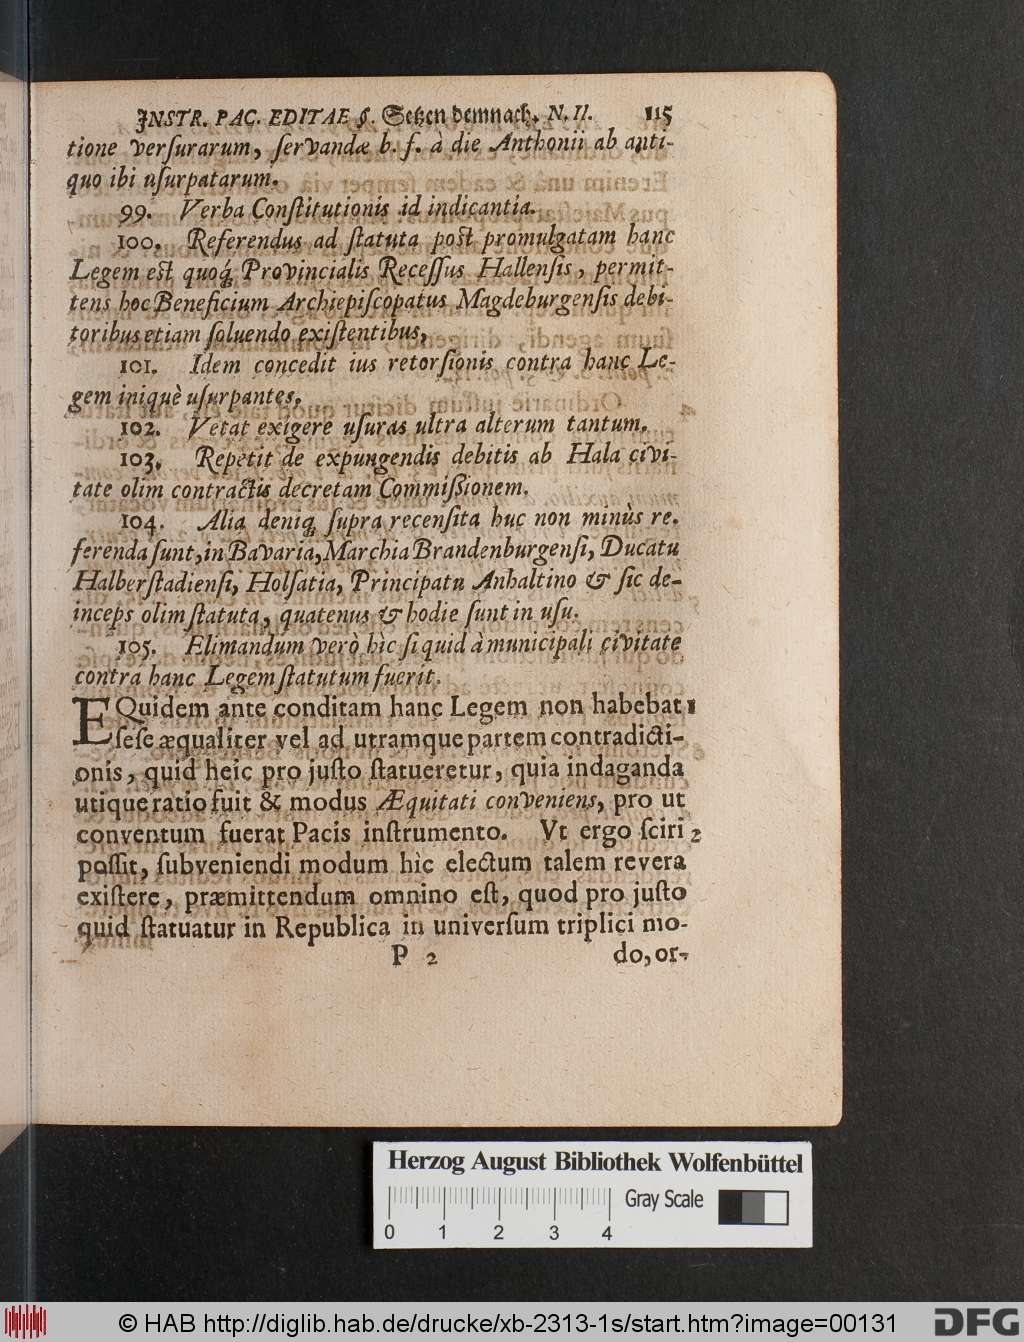 INSTR. PAC. EDITAE §. Setzen demnach. N. II. 115
tione versurarum, servandæ b. f. à die Anthonii ab anti-
quo ibi usurpatarum.
99. Verba Constitutionis id indicantia.
100. Referendus ad statuta post promulgatam hanc
Legem est quoq́; Provincialis Recessus Hallensis, permit-
tens hoc Beneficium Archiepiscopatus Magdeburgensis debi-
toribus etiam solvendo existentibus,
101. Idem concedit ius retorsionis contra hanc Le-
gem iniquè usurpantes.
102. Vetat exigere usuras ultra alterum tantum.
103. Repetit de expungendis debitis ab Hala civi-
tate olim contractis decretam Commißionem.
104. Alia deniq; supra recensita huc non minùs re.
ferenda sunt, in Bavaria, Marchia Brandenburgensi, Ducatu
Halberstadiensi, Holsatia, Principatu Anhaltino & sic de-
inceps olim statuta, quatenus & hodie sunt in usu.
105. Elimandum verò hìc si quid à municipali civitate
contra hanc Legem statutum fuerit.
EQuidem ante conditam hanc Legem non habebat 1
sese æqualiter vel ad utramque partem contradicti-
onis, quid heic pro justo statueretur, quia indaganda
utique ratio fuit & modus Æquitati conveniens, pro ut
conventum fuerat Pacis instrumento. Vt ergo sciri 2
possit, subveniendi modum hìc electum talem revera
existere, præmittendum omnino est, quod pro justo
quid statuatur in Republica in universum triplici mo-
P 2 do, or-
Herzog August Bibliothek Wolfenbüttel
Gray Scale
0 1 2 3 4
© HAB http://diglib.hab.de/drucke/xb-2313-1s/start.htm?image=00131
DFG